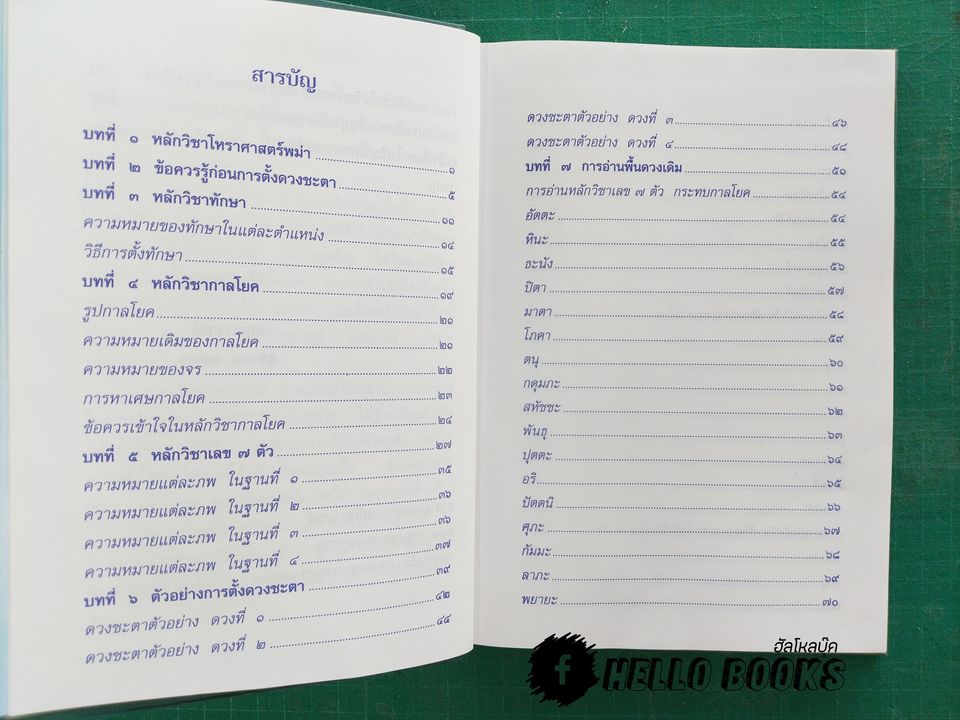 สารบัญ
บทที่ ๑ หลักวิชาโหราศาสตร์พม่า ๑
บทที่ ๒ ข้อควรรู้ก่อนการตั้งดวงชะตา ๕
บทที่ ๓ หลักวิชาทักษา ๑๑
ความหมายของทักษาในแต่ละตำแหน่ง ๑๔
วิธีการตั้งทักษา ๑๕
บทที่ ๔ หลักวิชากาลโยค ๑๙
รูปกาลโยค ๒๑
ความหมายเดิมของกาลโยค ๒๑
ความหมายของจร ๒๒
การหาเศษกาลโยค ๒๓
ข้อควรเข้าใจในหลักวิชากาลโยค ๒๔
บทที่ ๕ หลักวิชาเลข ๗ ตัว ๒๗
ความหมายแต่ละภพ ในฐานที่ ๑ ๓๕
ความหมายแต่ละภพ ในฐานที่ ๒ ๓๖
ความหมายแต่ละภพ ในฐานที่ ๓ ๓๖
ความหมายแต่ละภพ ในฐานที่ ๔ ๓๗
บทที่ ๖ ตัวอย่างการตั้งดวงชะตา ๓๙
ดวงชะตาตัวอย่าง ดวงที่ ๑ ๔๒
ดวงชะตาตัวอย่าง ดวงที่ ๒ ๔๔
ดวงชะตาตัวอย่าง ดวงที่ ๓ ๔๖
ดวงชะตาตัวอย่าง ดวงที่ ๔ ๔๘
บทที่ ๗ การอ่านพื้นดวงเดิม ๕๑
การอ่านหลักวิชาเลข ๗ ตัว กระทบกาลโยค ๕๔
อัตตะ ๕๔
หินะ ๕๕
ธะนัง ๕๖
ปิตา ๕๗
มาตา ๕๘
โภคา ๕๙
ตนุ ๖๐
กดุมภะ ๖๑
สหัชชะ ๖๒
พันธุ ๖๓
ปุตตะ ๖๔
อริ ๖๕
ปัตตนิ ๖๖
ศุภะ ๖๗
กัมมะ ๖๘
ลาภะ ๖๙
พยายะ ๗๐
ฮัลโหลบุ๊ค
f HELLO BOOKS